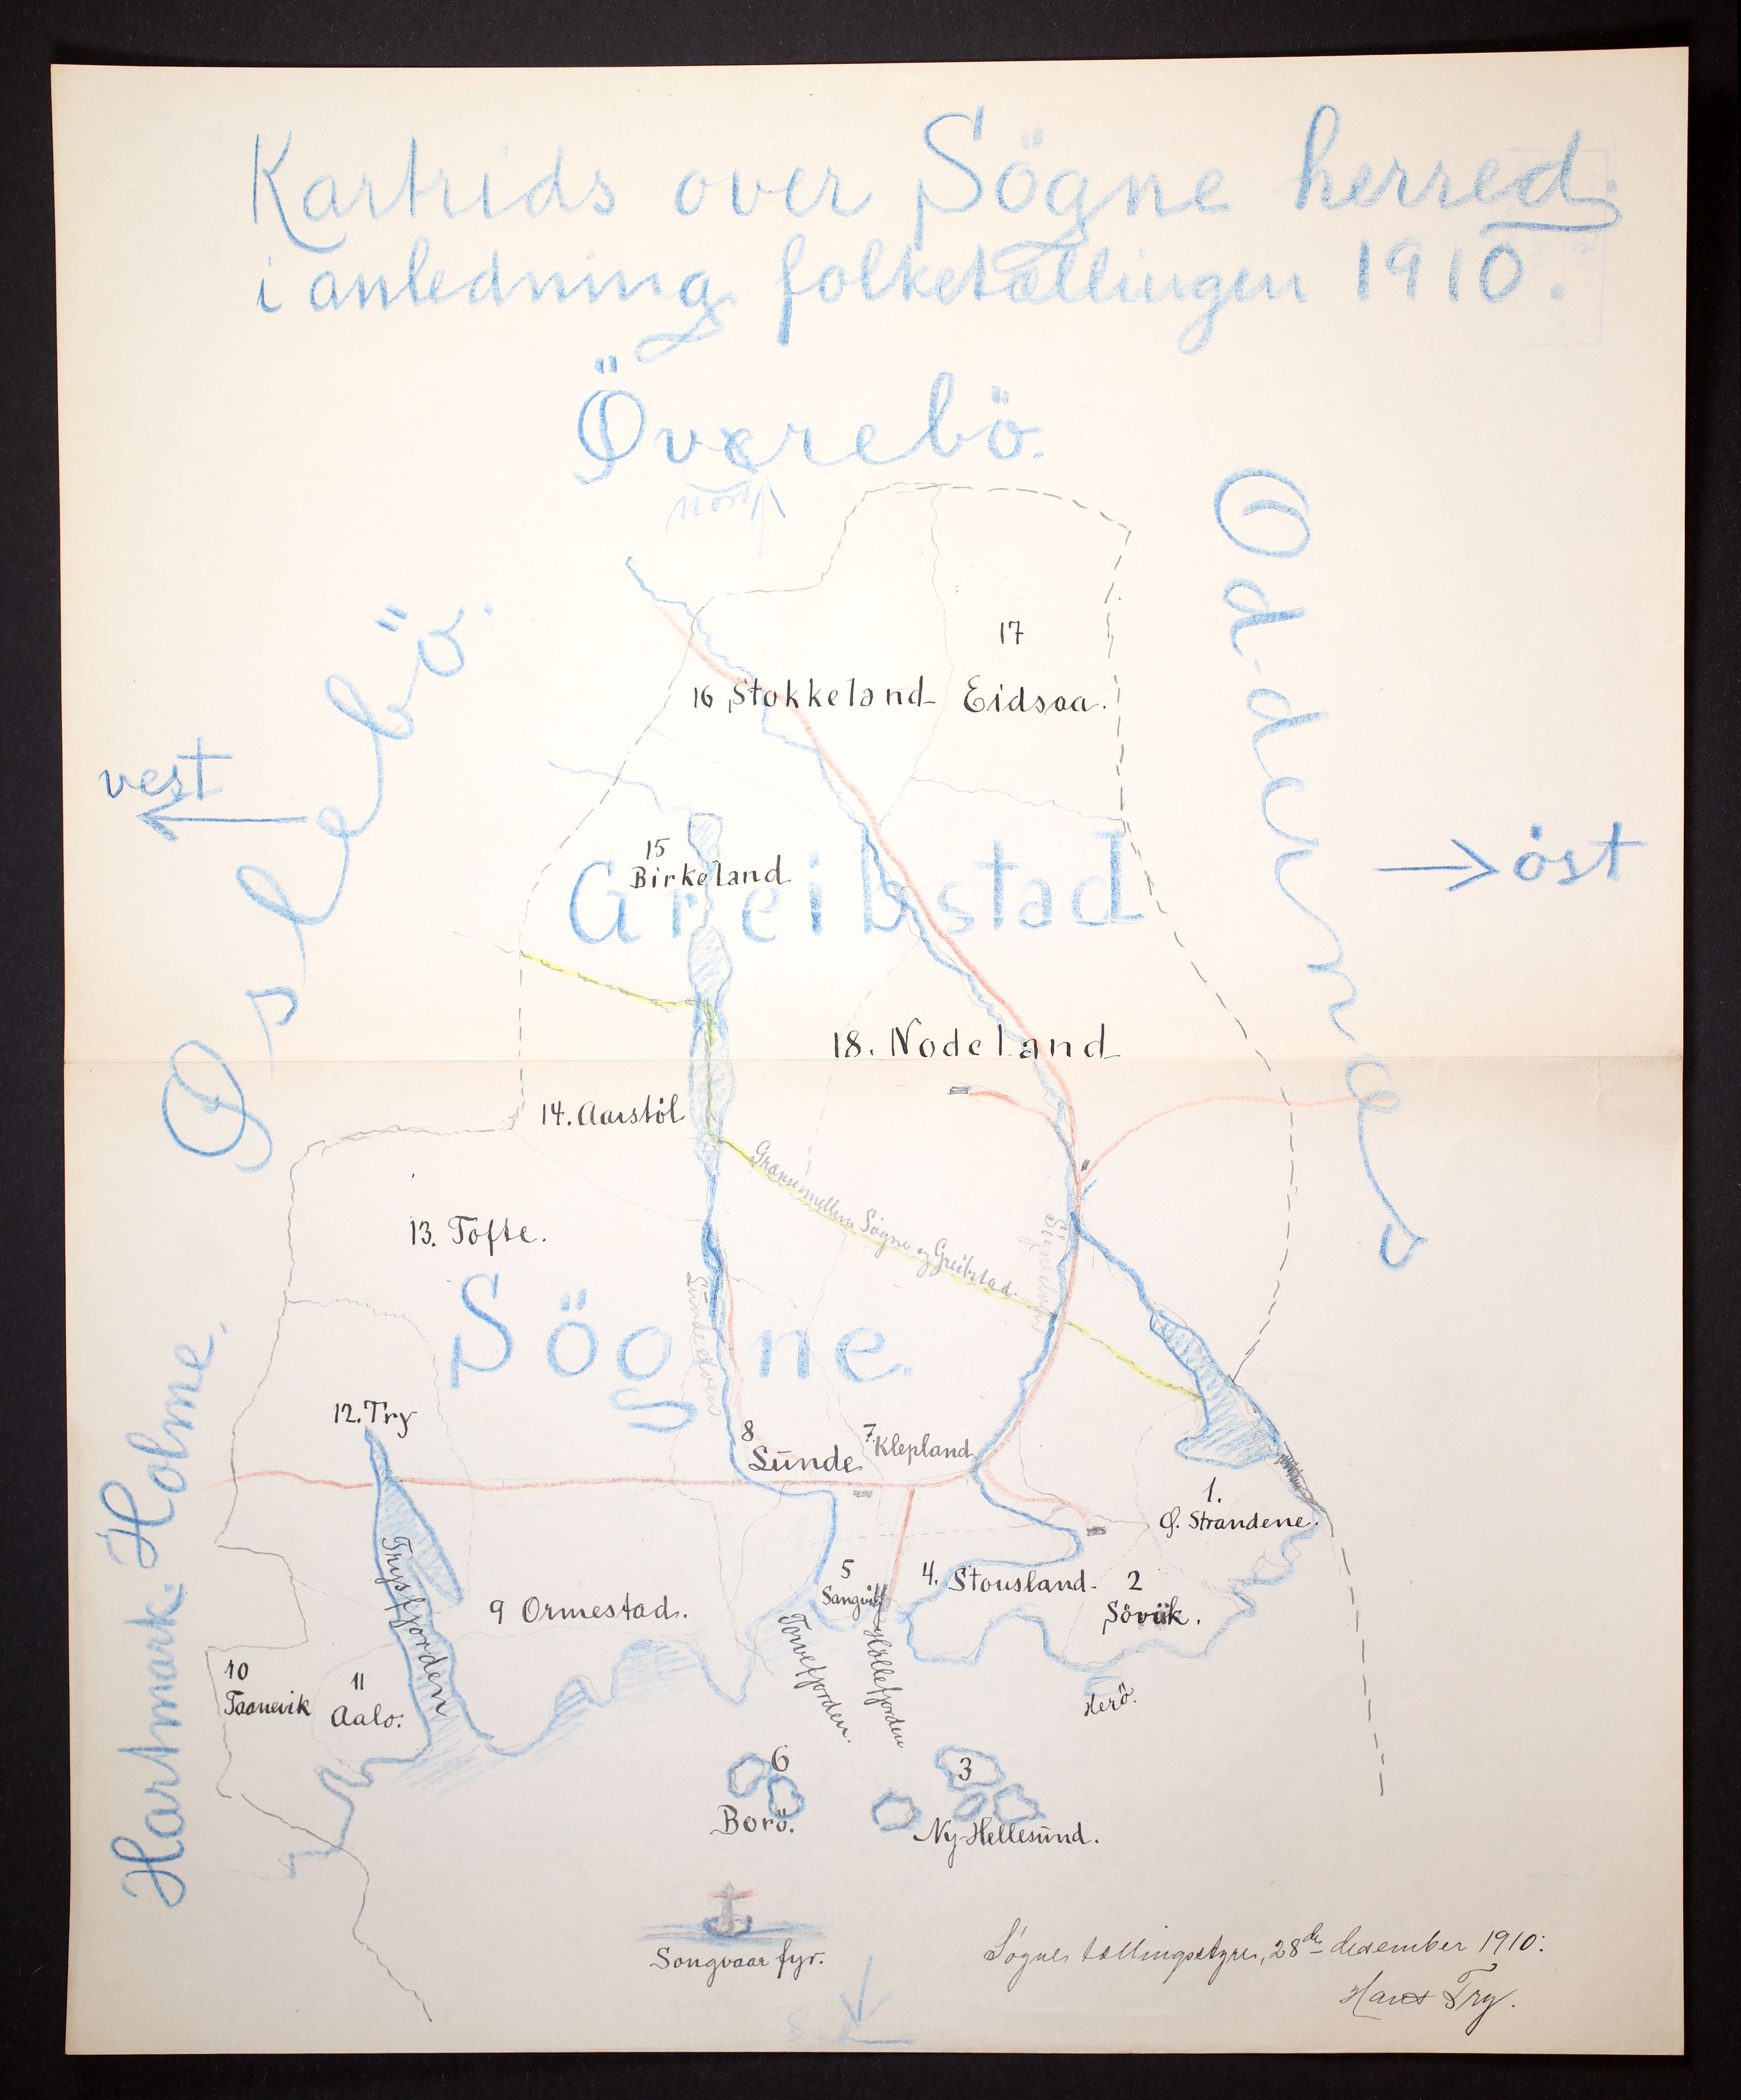 Kartrids over Sögne herred.
i anledning folketællingen 1910.
Øverebö.
nord
Oddernes
Øslebö.
vest
öst
17
16 Stokkeland
Eidsaa.
15
Birkeland
Greibstad
18. Nodeland
14. Aarstöl
Grænse mellem Sögne og Greibstad.
13. Tofte.
Sögneelven
Sundeelven.
Sögne.
12. Try
8
Sunde
7. Klepland
Hartmark-Holme.
1.
Ö. Strandene.
Trysfjorden
5
Sangvik
4. Stousland.
2
Sövik.
9 Ormestad.
Torvefjorden.
Höllefjorden
10
Taanevik
11
Aalo.
Herö.
6
Borö.
3
Ny-Hellesund.
Songvaar fyr.
Søgnes tællingsstyre, 28de december 1910:
Hans Try.
Syd